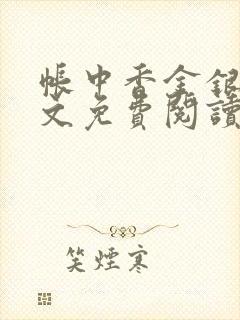 帳中香金銀
文免費閱讀
笑煙寒